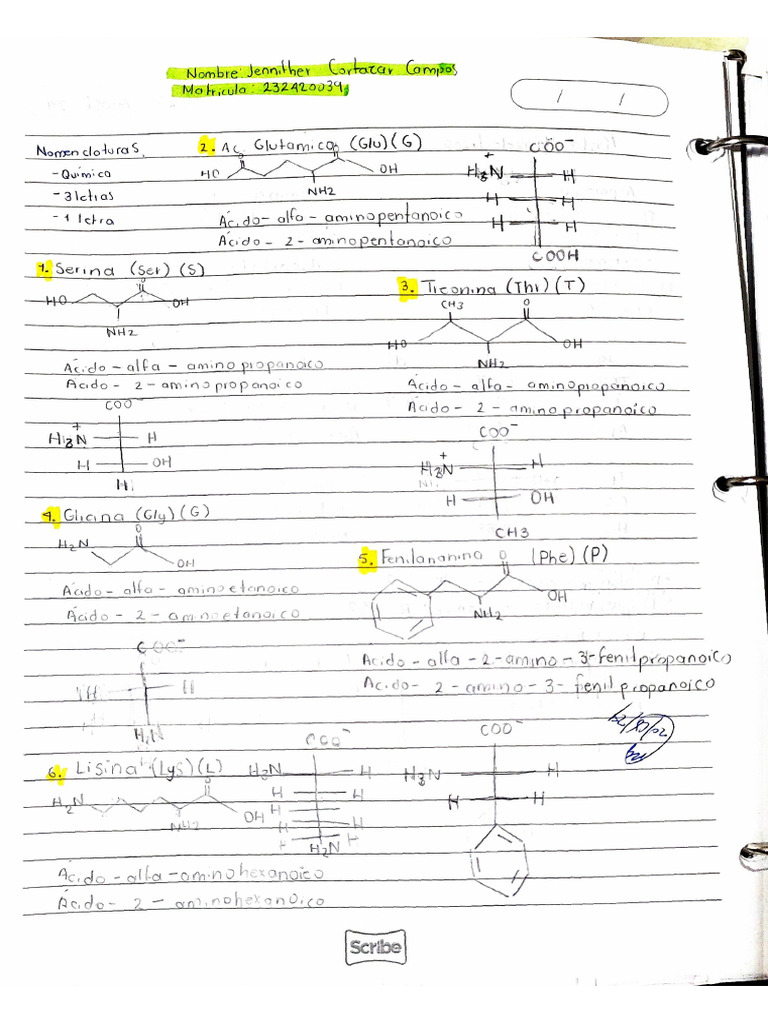 Nombre: Jennifher Cortazar Campos
Matricula: 232420039
/ /
Nomenclaturas.
- Químico
- 3 letras
- 1 letra
2. Ac Glutamico (Glu) (G)
O O
HO OH
NH2
Ácido - alfa - aminopentanoico
Ácido - 2 - aminopentanoico
COO⁻
H3N⁺ H
H H
H H
COOH
1. Serina (Ser) (S)
O
HO OH
NH2
Ácido - alfa - aminopropanoico
Ácido - 2 - aminopropanoico
COO⁻
H3N⁺ H
H OH
H
3. Treonina (Thr) (T)
CH3 O
HO OH
NH2
Ácido - alfa - aminopropanoico
Ácido - 2 - aminopropanoico
COO⁻
H3N⁺ H
H OH
CH3
4. Glicina (Gly) (G)
O
H2N
OH
Ácido - alfa - aminoetanoico
Ácido - 2 - aminoetanoico
COO⁻
H H
H2N
5. Fenilananina (Phe) (P)
O
OH
NH2
Acido - alfa - 2 - amino - 3 - fenilpropanoico
Acido - 2 - amino - 3 - fenilpropanoico
COO⁻
H3N H
H H
6. Lisina (Lys) (L)
O
H2N OH
NH2
COO⁻
H2N H
H H
H H
H H
H H
H2N
Ácido - alfa - aminohexanoico
Ácido - 2 - aminohexanoico
Scribe